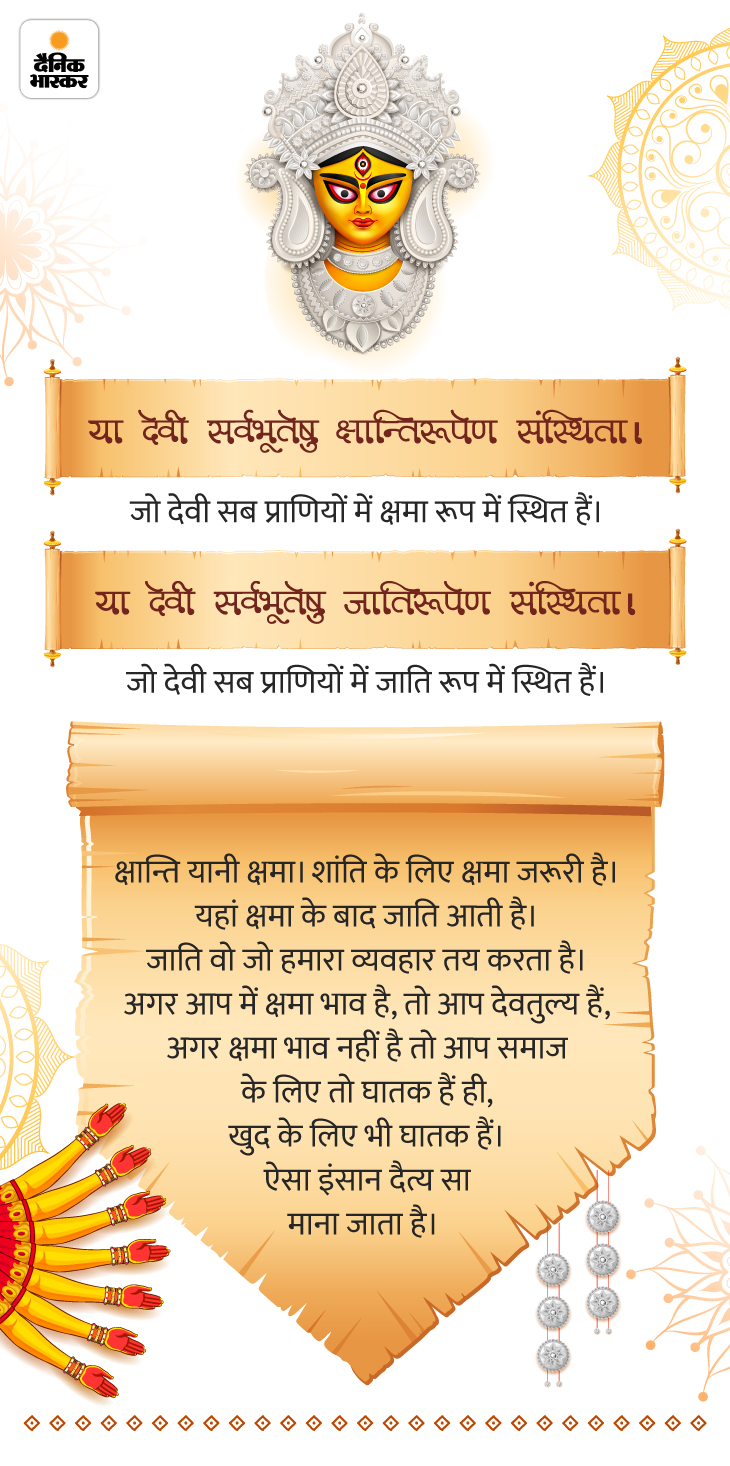 दैनिक
भास्कर
या देवी सर्वभूतेषु क्षान्तिरूपेण संस्थिता।
जो देवी सब प्राणियों में क्षमा रूप में स्थित हैं।
या देवी सर्वभूतेषु जातिरूपेण संस्थिता।
जो देवी सब प्राणियों में जाति रूप में स्थित हैं।
क्षान्ति यानी क्षमा। शांति के लिए क्षमा जरूरी है।
यहां क्षमा के बाद जाति आती है।
जाति वो जो हमारा व्यवहार तय करता है।
अगर आप में क्षमा भाव है, तो आप देवतुल्य हैं,
अगर क्षमा भाव नहीं है तो आप समाज
के लिए तो घातक हैं ही,
खुद के लिए भी घातक हैं।
ऐसा इंसान दैत्य सा
माना जाता है।